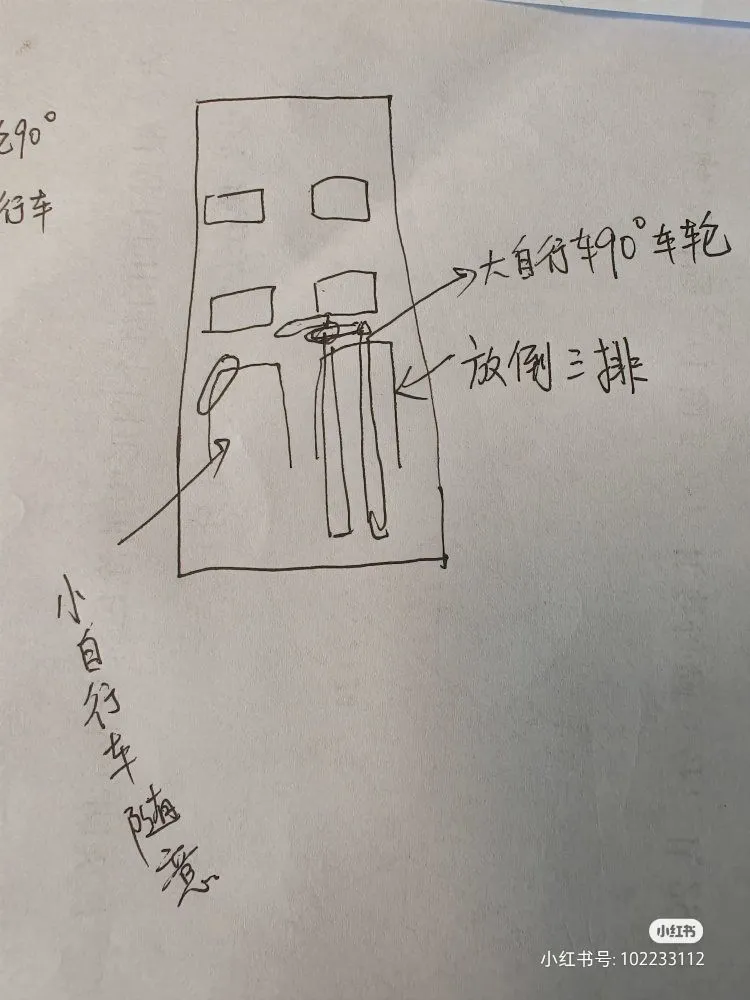 轮90°
行车
大自行车90°车轮
放倒三排
小自行车随意
小红书
小红书号: 102233112